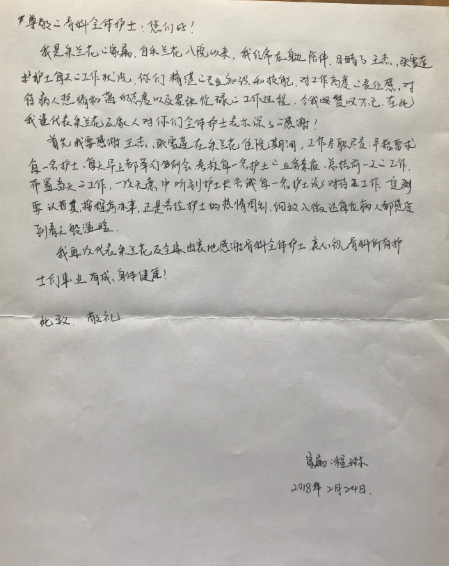 尊敬的骨科全体护士:您们好!
我是朱兰花的家属,自朱兰花入院以来,我经常在身边陪伴,目睹了王志,张雪莲
护士每天的工作状况,你们精湛的专业知识和技能,对工作高度的责任感,对
待病人热情和蔼的态度以及紧张忙碌的工作过程,令我感慨叹不已,在此
我谨代表朱兰花及家人对你们全体护士表示深深的感谢!
首先我要感谢王志,张雪莲在朱兰花住院期间,工作尽职尽责,严格要求
每一名护士,每天早上都举行例会,考核每一名护士的业务素质,总结前一天的工作,
布置当天的工作,一次无意中听到护士长告诫每一名护士说,对待工作
要认真,正是各位护士的热情周到,细致入微,让每位病人都感受
到春天般温暖.
我再次代表朱兰花及全家由衷地感谢骨科全体护士,衷心祝骨科所有护
士们事业有成,身体健康!
此致、敬礼
家属:程林
2018年2月24日.